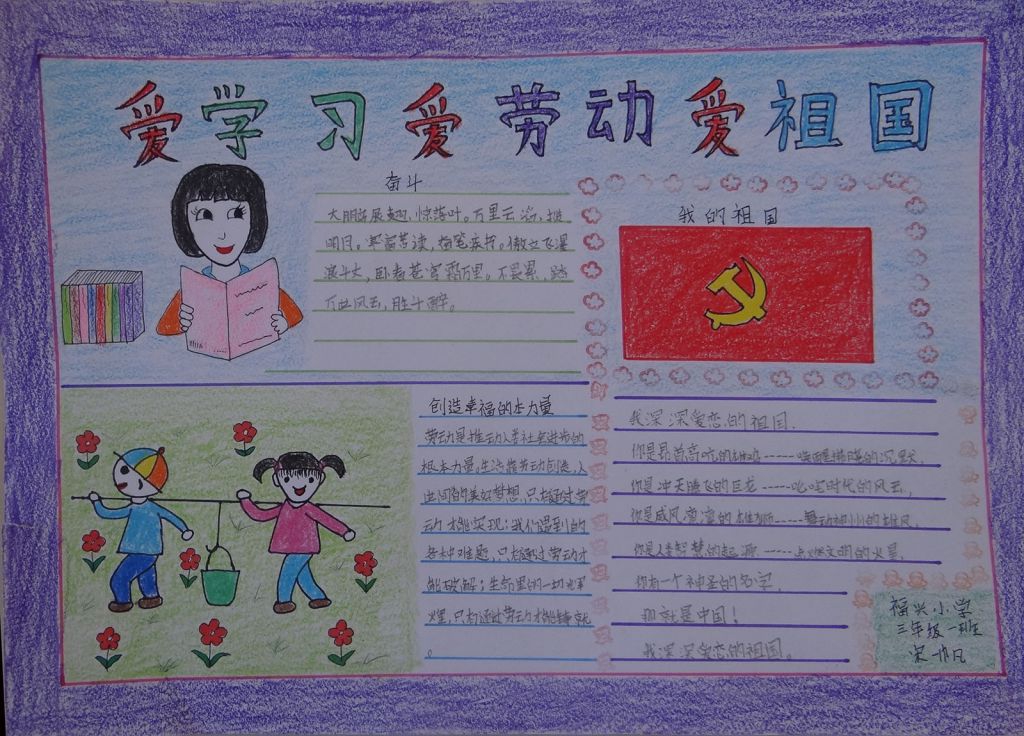 爱学习爱劳动爱祖国
奋斗
大鹏展翅,惊落叶。万里云
明月。寒窗苦读,
万里。不畏累,踏
万世风云,胜
我的祖国
创造幸福的本力量
劳动是推动人类社会进步的
根本力量。生活靠劳动创造,人
世间的美好梦想,只有通过劳
动才能实现;我们遇到的
各种难题,只有通过劳动才
能破解;生命里的一切光辉
煌,只有通过劳动才能铸就
。
我深深爱恋的祖国.
你是昂首高吭的雄鸡-----唤醒拂晓的沉默,
你是冲天腾飞的巨龙-----叱咤时代的风云,
你是威风凛凛的雄狮-----舞动神州的雄风,
你是人类智慧的起源-----点燃文明的火星,
你有一个神圣的名字,
那就是中国!
我深深爱恋的祖国。
福兴小学
三年级一班
宋